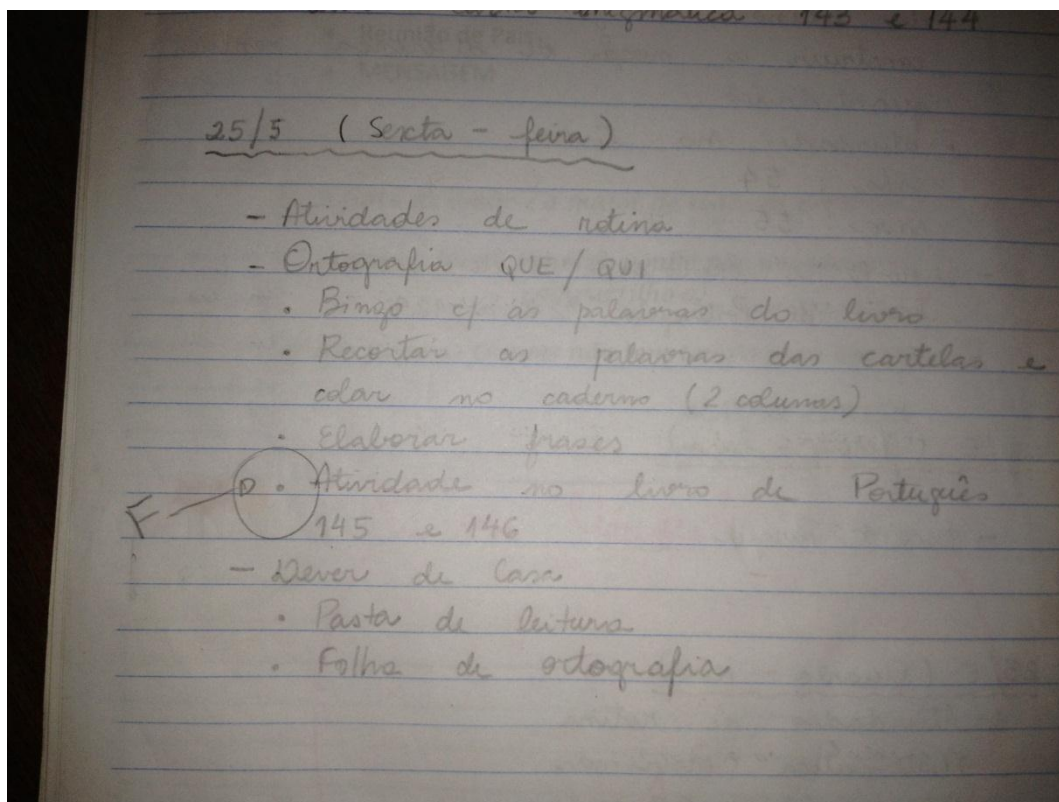 enigmática 143 e 144
25/5 (Sexta - feira)
- Atividades de rotina
- Ortografia QUE/QUI
• Bingo c/ as palavras do livro
• Recortar as palavras das cartelas e
colar no caderno (2 colunas)
• Elaborar frases
• Atividade no livro de Português
145 e 146
- Dever de Casa
• Pasta de leitura
• Folha de ortografia